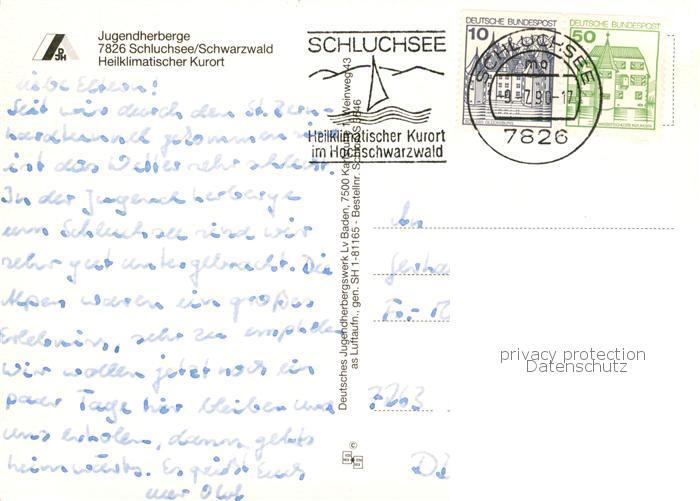 Jugendherberge
7826 Schluchsee/Schwarzwald
Heilklimatischer Kurort
DJH
Liebe Eltern!
Seit wir durch den St. Bern-
hardtunnel gekommen
ist das Wetter sehr schlecht.
In der Jugendherberge
am Schluchsee sind wir
sehr gut untergebracht. Die
Alpen waren ein großes
Erlebnis, sehr zu
Wir wollen jetzt noch ein
paar Tage hier bleiben und
uns erholen, dann gehts
heimwärts. Es grüßt Euch
euer Olaf
Deutsches Jugendherbergswerk Lv Baden, 7500 Karlsruhe 1, Weinweg 43
as Luftaufn., gen. SH 1-81165 - Bestellnr.
SCHLUCHSEE
Heilklimatischer Kurort
im Hochschwarzwald
DEUTSCHE BUNDESPOST
10
DEUTSCHE BUNDESPOST
50
SCHLUCHSEE
mo
-9.-7.90-17
7826
An
privacy protection
Datenschutz